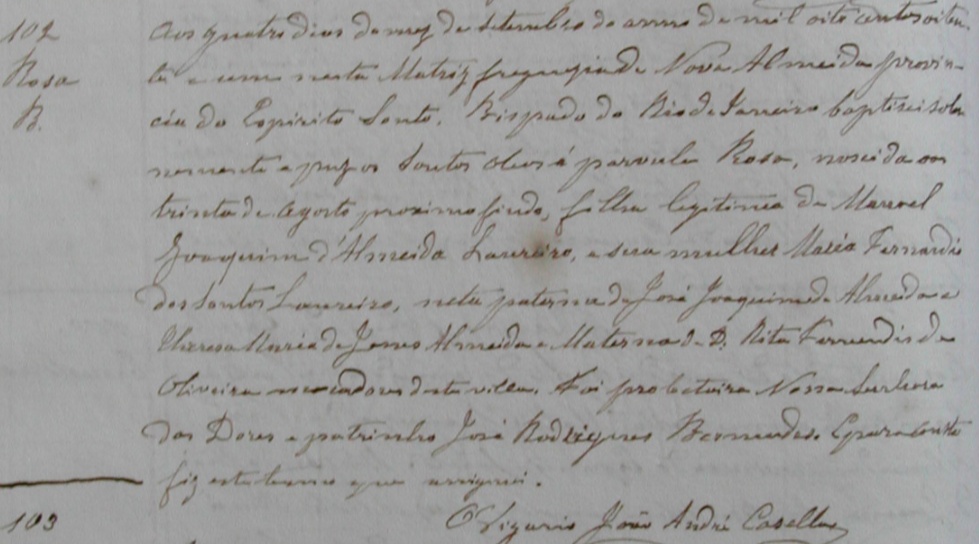 102
Rosa
B.
Aos quatro dias do mez de Setembro do anno de mil oito centos oiten-
ta e um nesta Matriz freguezia de Nova Almeida provin-
cia do Espirito Santo, Bispado do Rio de Janeiro baptisei solen
nemente e puz os Santos oleos á parvula Rosa, nascida em
trinta de Agosto proximo findo, filha legitima de Manoel
Joaquim d'Almeida Loureiro, e sua mulher Maria Fernandes
dos Santos Loureiro, neta paterna de José Joaquim de Almeida e
Thereza Maria de Almeida e Materna de D. Rita Fernandes de
Oliveira moradores desta villa. Foi protectora Nossa Senhora
das Dores e patrinho José Rodrigues Bermudes. E para constar
fiz este termo que assignei.
O Vigario João André Casella
103